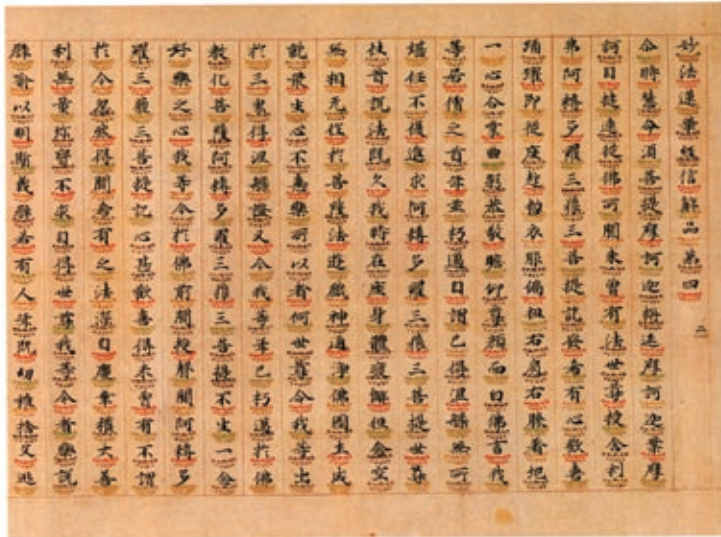 妙法蓮華經信解品第四
尒時慧命須菩提摩訶迦旃延摩訶迦葉摩
訶目揵連從佛所聞未曾有法世尊授舍利
弗阿耨多羅三藐三菩提記發希有心歡喜
踊躍即從座起整衣服偏袒右肩右膝著地
一心合掌曲躬恭敬瞻仰尊顏而白佛言我
等居僧之首年並朽邁自謂已得涅槃無所
堪任不復進求阿耨多羅三藐三菩提世尊
往昔說法既久我時在座身體疲懈但念空
無相无作於菩薩法遊戲神通淨佛國土成
就衆生心不喜樂所以者何世尊令我等出
於三界得涅槃證又今我等年已朽邁於佛
教化菩薩阿耨多羅三藐三菩提不生一念
好樂之心我等今於佛前聞授聲聞阿耨多
羅三藐三菩提記心甚歡喜得未曾有不謂
於今忽然得聞希有之法深自慶幸獲大善
利無量珍寶不求自得世尊我等今者樂說
譬喻以明斯義譬若有人年既幼稚捨父逃